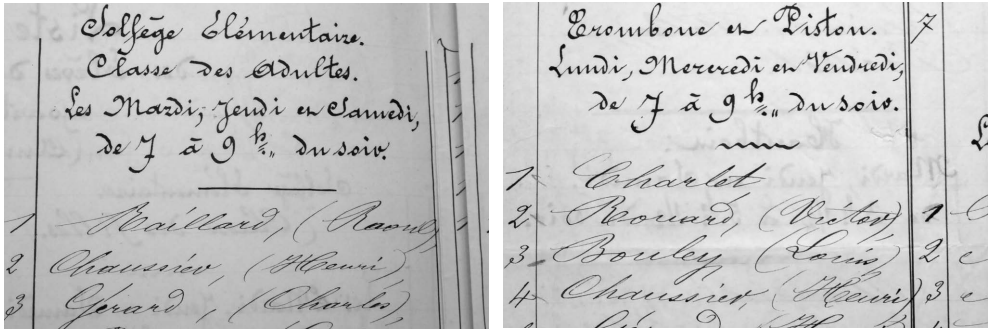 Solfège Élémentaire.
Classe des Adultes.
Les Mardi, Jeudi et Samedi,
de 7 à 9 h. du soir.
1 Maillard, (Raoul)
2 Chaussier, (Henri)
3 Gérard, (Charles),
Trombone et Piston. 7
Lundi, Mercredi et Vendredi,
de 7 à 9 h. du soir.
1 Charlet
2 Rouard, (Victor) 1
3 Bouley (Louis) 2
4 Chaussier, (Henri) 3